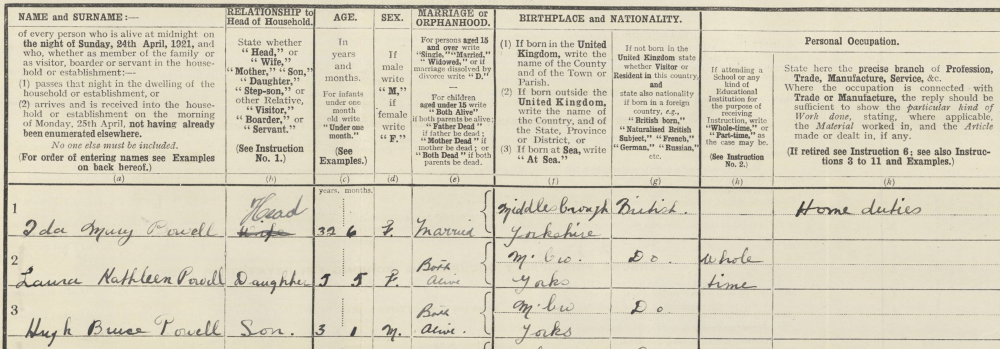 NAME and SURNAME:—
of every person who is alive at midnight on
the night of Sunday, 24th April, 1921, and
who, whether as member of the family or
as visitor, boarder or servant in the house-
hold or establishment:—
(1) passes that night in the dwelling of the
household or establishment, or
(2) arrives and is received into the house-
hold or establishment on the morning
of Monday, 25th April, not having already
been enumerated elsewhere.
No one else must be included.
(For order of entering names see Examples
on back hereof.)
(a)
RELATIONSHIP to
Head of Household.
State whether
"Head," or
"Wife,"
"Mother," "Son,"
"Daughter,"
"Step-son," or
other Relative,
"Visitor."
"Boarder," or
"Servant."
(See Instruction
No. 1.)
(b)
AGE.
In
years
and
months.
For infants
under one
month
old write
"Under one
month."
(See
Examples.)
(c)
SEX.
If
male
write
"M,"
if
female
write
"F."
(d)
MARRIAGE or
ORPHANHOOD.
For persons aged 15
and over write
"Single," "Married,"
"Widowed," or if
marriage dissolved by
divorce write "D."
For children
aged under 15 write
if both parents be alive,
"Both Alive"
"Father Dead"
if father be dead;
"Mother Dead" if
mother be dead; or
"Both Dead" if both
parents be dead.
(e)
BIRTHPLACE and NATIONALITY.
(1) If born in the United
Kingdom, write the
name of the County
and of the Town or
Parish.
(2) If born outside the
United Kingdom,
write the name of
the Country, and of
the State, Province
or District, or
(3) If born at Sea, write
"At Sea,"
(f)
If not born in the
United Kingdom state
whether Visitor or
Resident in this country,
and
state also nationality
if born in a foreign
country, e.g.,
"British born,"
"Naturalised British
Subject," "French,"
"German," "Russian,"
etc.
(g)
If attending a
School or any
kind of
Educational
Institution for
the purpose of
receiving
Instruction, write
"Whole-time," or
"Part-time," as
the case may be.
(See Instruction
No. 2.)
(h)
Personal Occupation.
State here the precise branch of Profession,
Trade, Manufacture, Service, &c.
Where the occupation is connected with
Trade or Manufacture, the reply should be
sufficient to show the particular kind of
Work done, stating, where applicable,
the Material worked in, and the Article
made or dealt in, if any.
(If retired see Instruction 6; see also Instruc-
tions 3 to 11 and Examples.)
(k)
years. months.
1
Ida Mary Powell Head Wife 32 6 F. Married Middlesbrough British. Home duties
Yorkshire
2
Laura Kathleen Powell Daughter 5 5 F. Both Alive M'bro. Do. Whole
Yorks time
3
Hugh Bruce Powell Son. 3 1 M. Both Alive. M'bro Do
Yorks